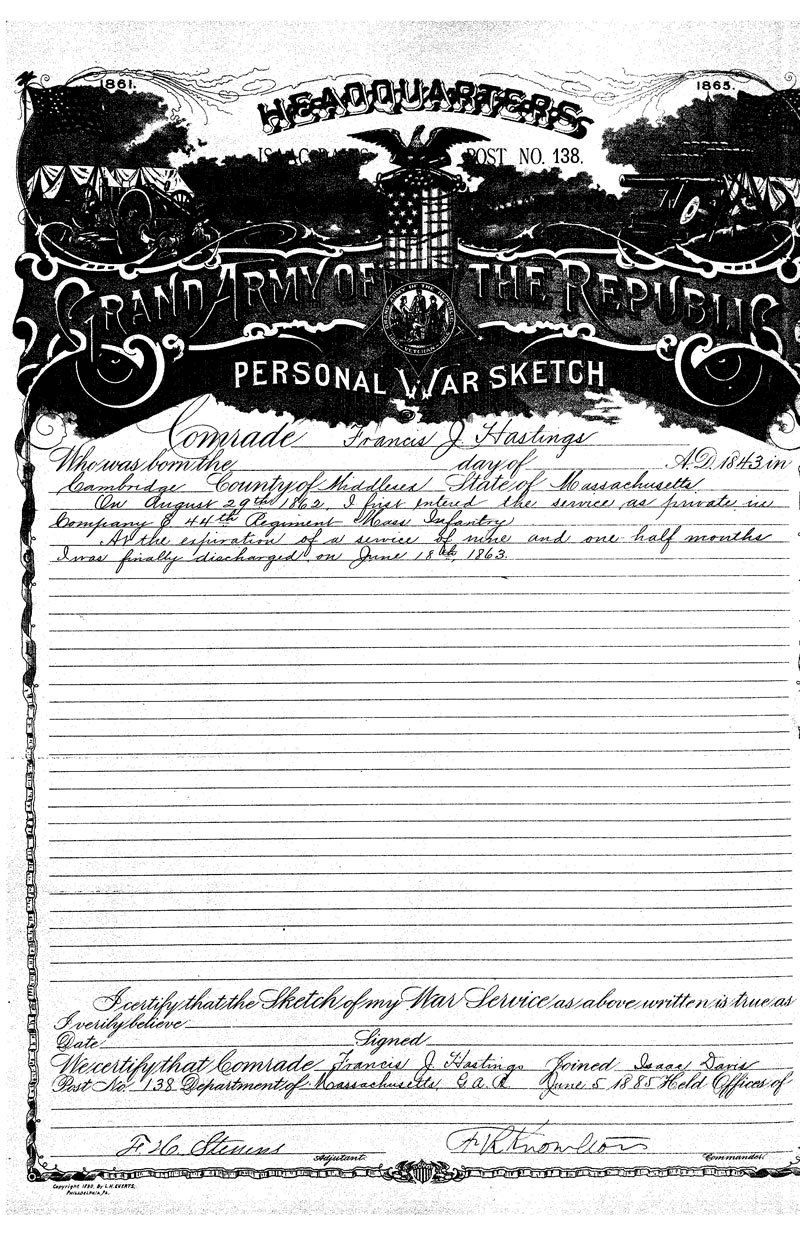 1861.
HEADQUARTERS
1865.
ISAAC DAVIS POST NO. 138.
GRAND ARMY OF THE REPUBLIC
PERSONAL WAR SKETCH
Comrade Francis J. Hastings
Who was born the day of A.D. 1843 in
Cambridge County of Middlesex State of Massachusetts
On August 29th 1862, I first entered the service, as private in
Company E 44th Regiment Mass Infantry
At the expiration of a service of nine and one half months
I was finally discharged, on June 18th, 1863.
I certify that the Sketch of my War Service as above written is true as
I verily believe
Date Signed
We certify that Comrade Francis J. Hastings Joined Isaac Davis
Post No. 138 Department of Massachusetts G.A.R. June 5 1885 Held Offices of
F H. Stevens Adjutant. F. R. Knowlton Commander.
Copyright 1880, By L.H. EVERTS,
PHILADELPHIA, PA.